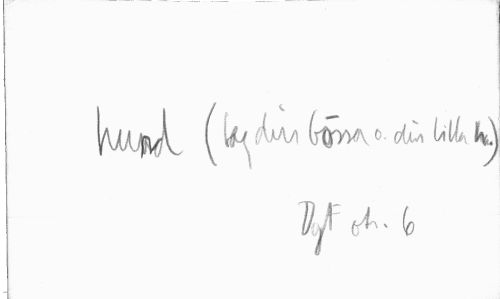 hund (tag din bössa o. din lilla h.)
DgF str. 6